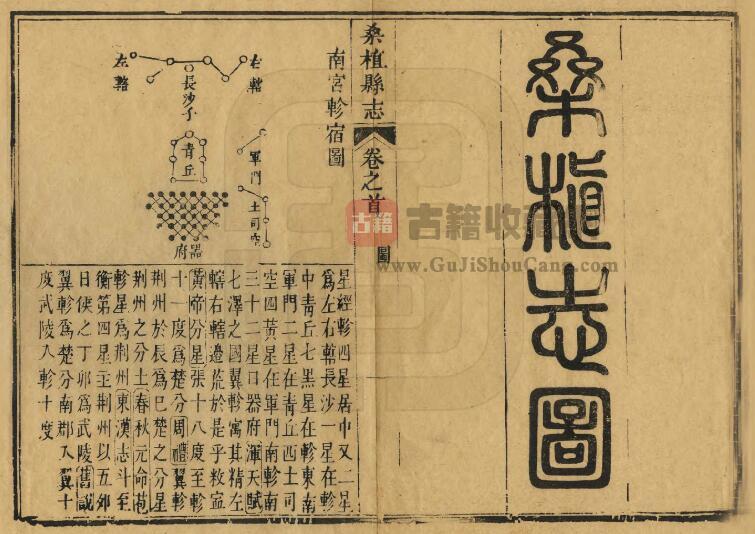 桑植志圖
桑植縣志
卷之首
圖
南宮軫宿圖
右轄
左轄
長沙子
青丘
軍門
土司空
器府
星經軫四星居中又二星
為左右轄長沙一星在軫
中青丘七黑星在軫東南
軍門二星在青丘西土司
空四黃星在軍門南軫南
三十二星曰器府渾天賦
七澤之國翼軫寓其精左
轄右轄邊荒於是乎敉寍
黃帝分星張十八度至軫
十一度為楚分周禮翼軫
荊州於辰為巳楚之分星
荊州之分土春秋元命苞
軫星為荊州東漢志斗至
衡第四星主荊州以五郊
日侯之丁卯為武陵舊誌
翼軫為楚分南郡入翼十
度武陵入軫十度
古籍
古籍收藏
www.GuJiShouCang.com